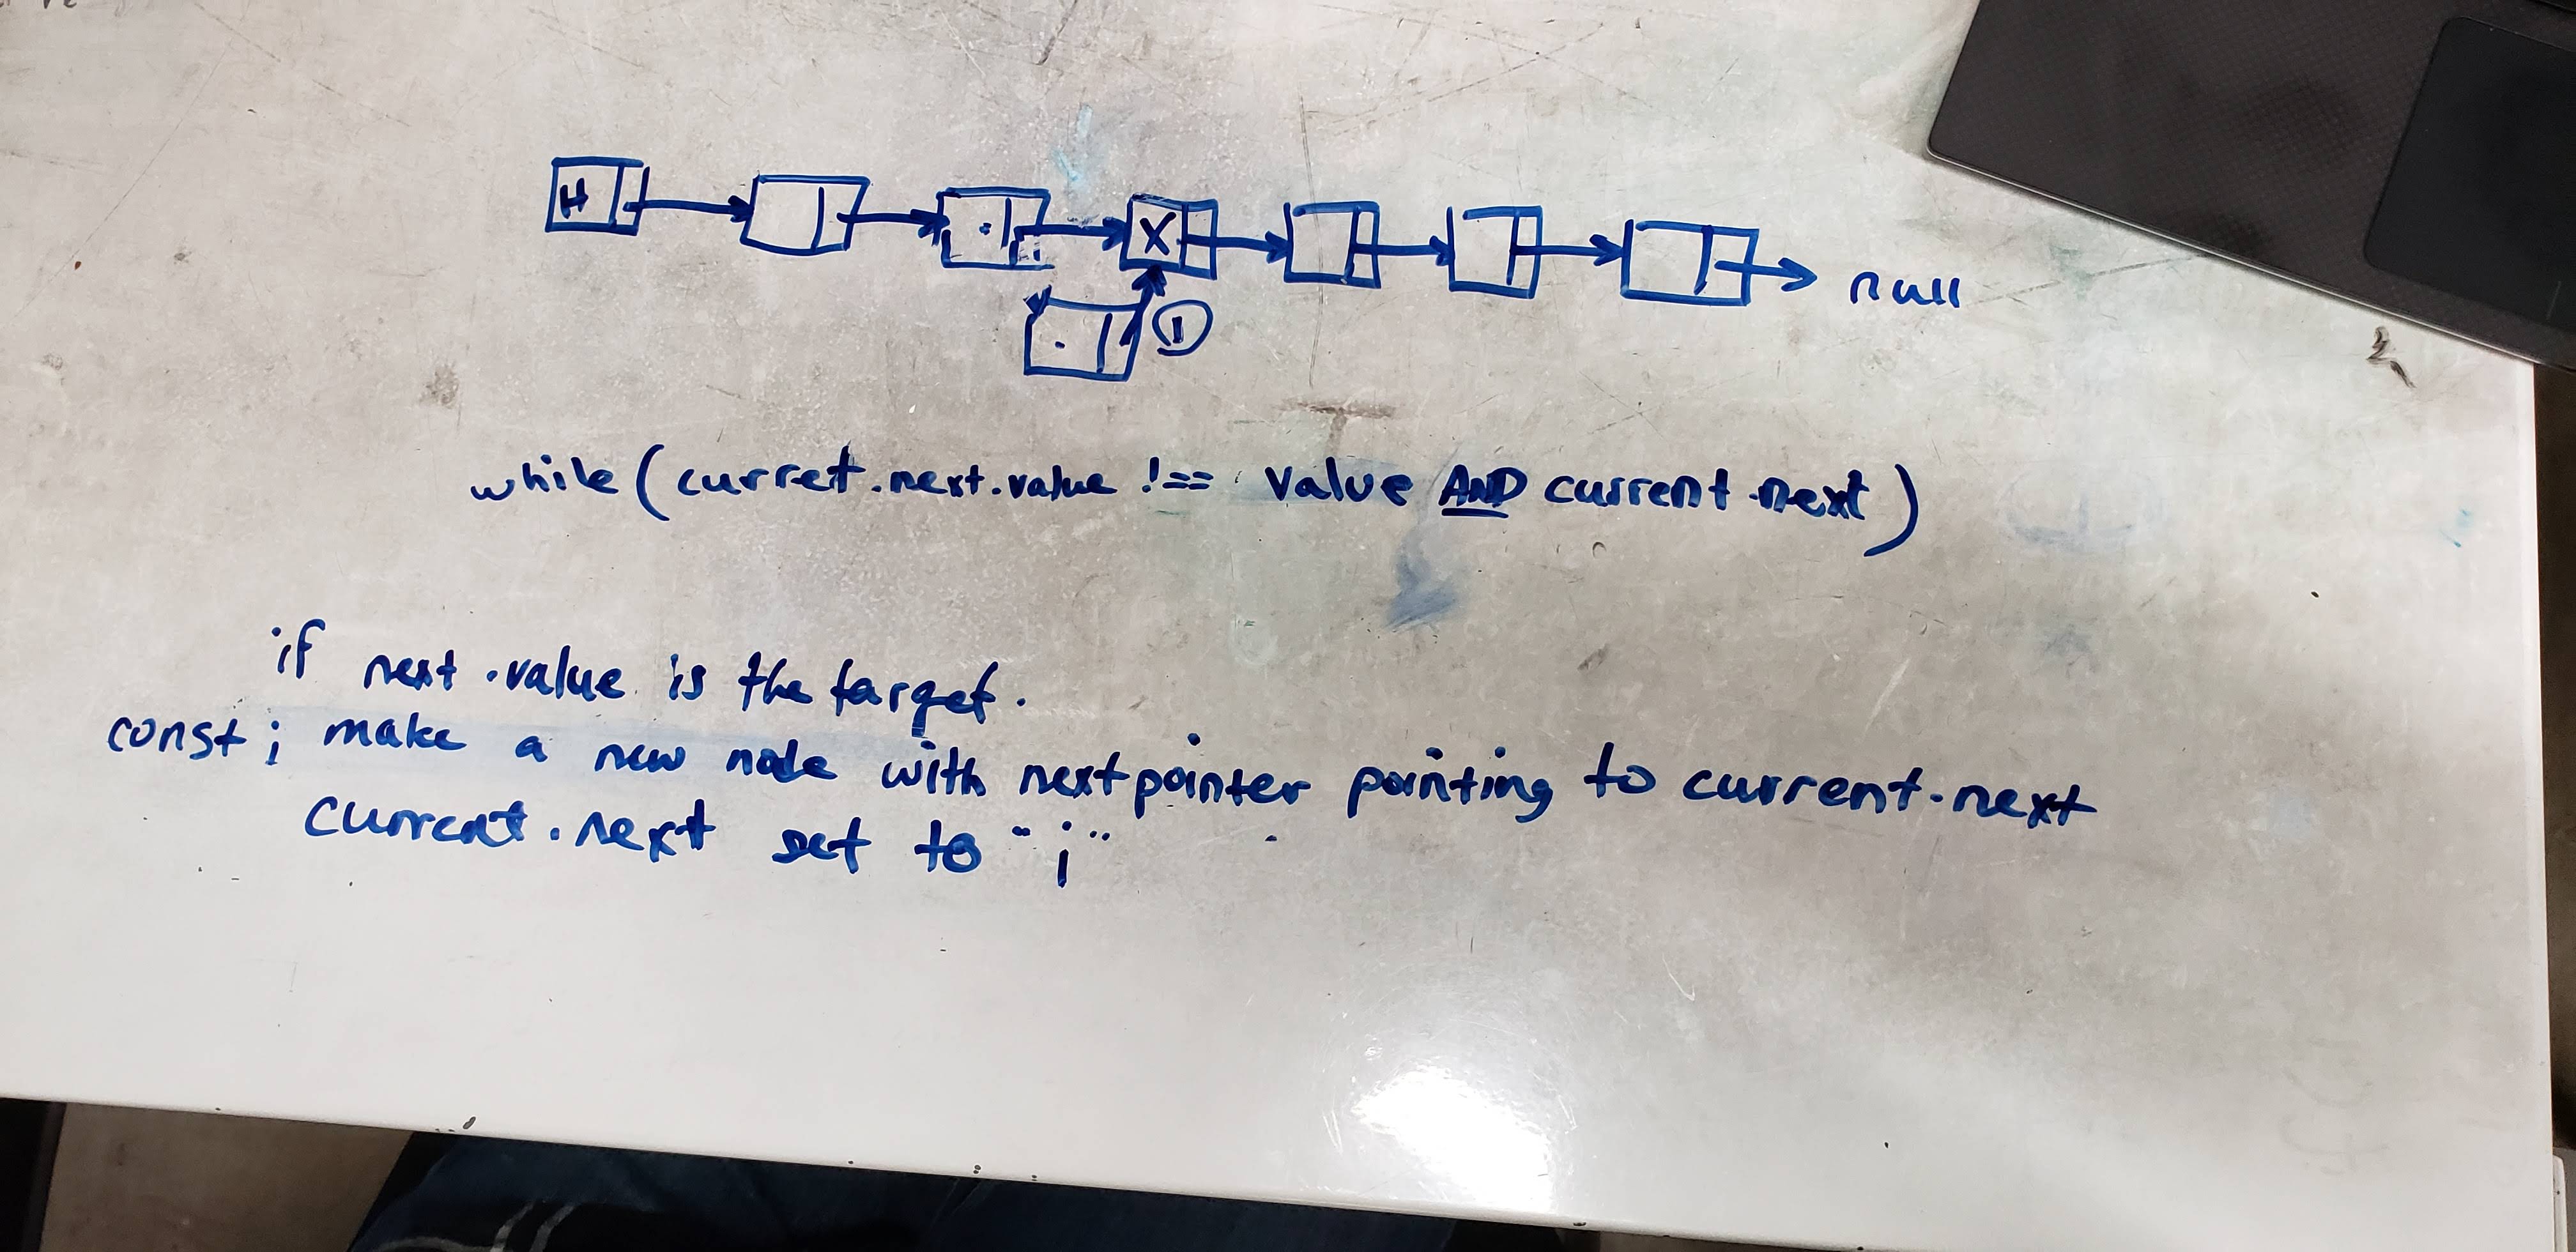 H
X
null
1
while (current.next.value !== value AND current.next)
if next.value is the target.
const i make a new node with next pointer pointing to current.next
current.next set to "i"